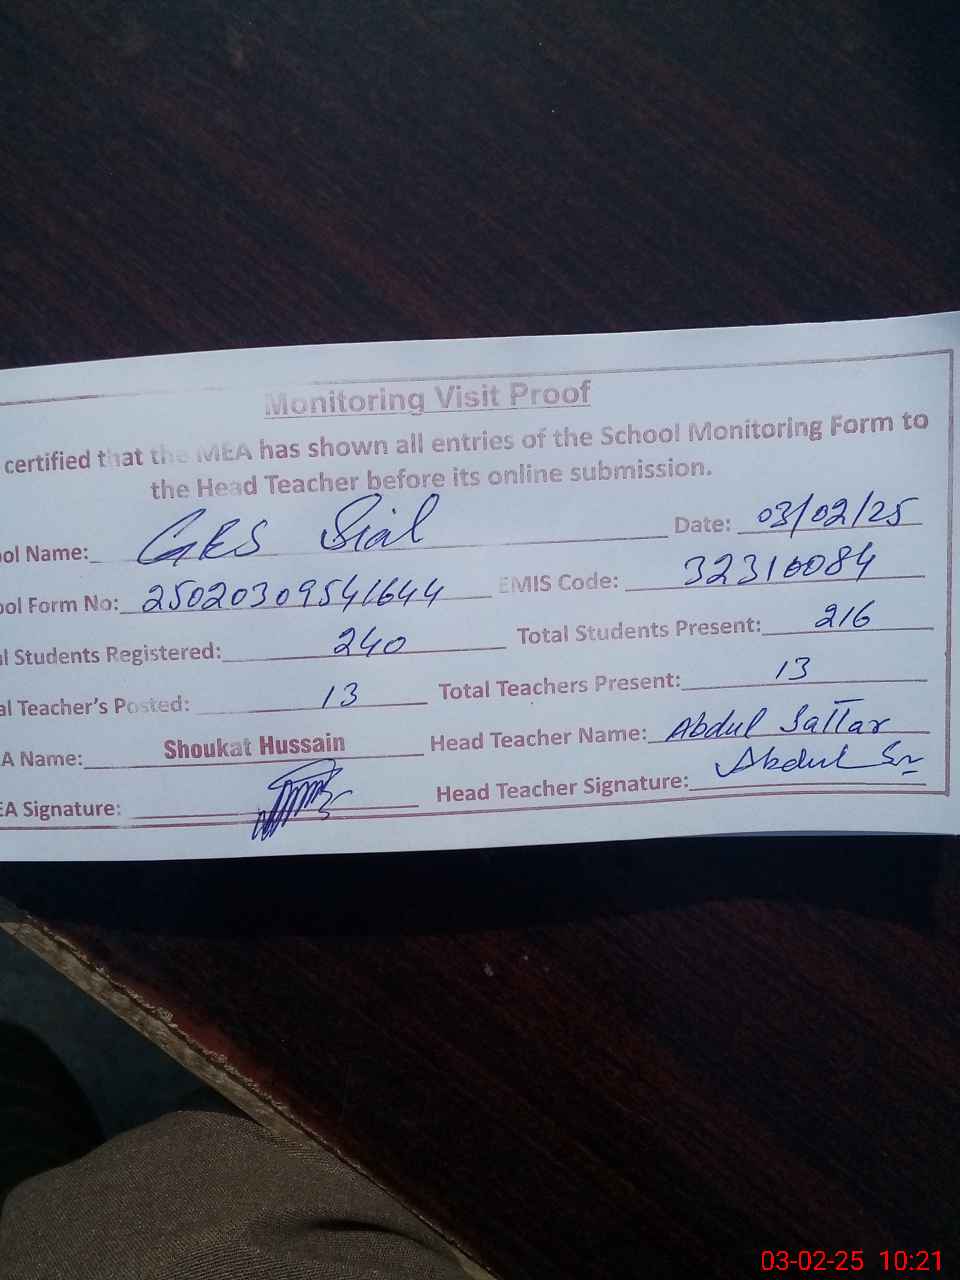 Monitoring Visit Proof
certified that the MEA has shown all entries of the School Monitoring Form to
the Head Teacher before its online submission.
ool Name: GES Sial Date: 03/02/25
ool Form No: 25020309541644 EMIS Code: 32310084
al Students Registered: 240 Total Students Present: 216
al Teacher's Posted: 13 Total Teachers Present: 13
A Name: Shoukat Hussain Head Teacher Name: Abdul Sattar
EA Signature: Head Teacher Signature: Abdul
03-02-25 10:21